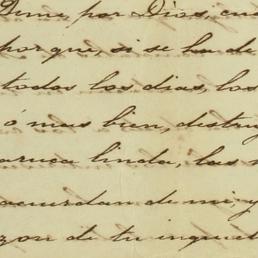 Dime, por Dios, cua
porque, si se ha de
todos los dias, los
ó mas bien, destru
aruca linda, las
acuerdan de mi, y
zon de tu inquiet